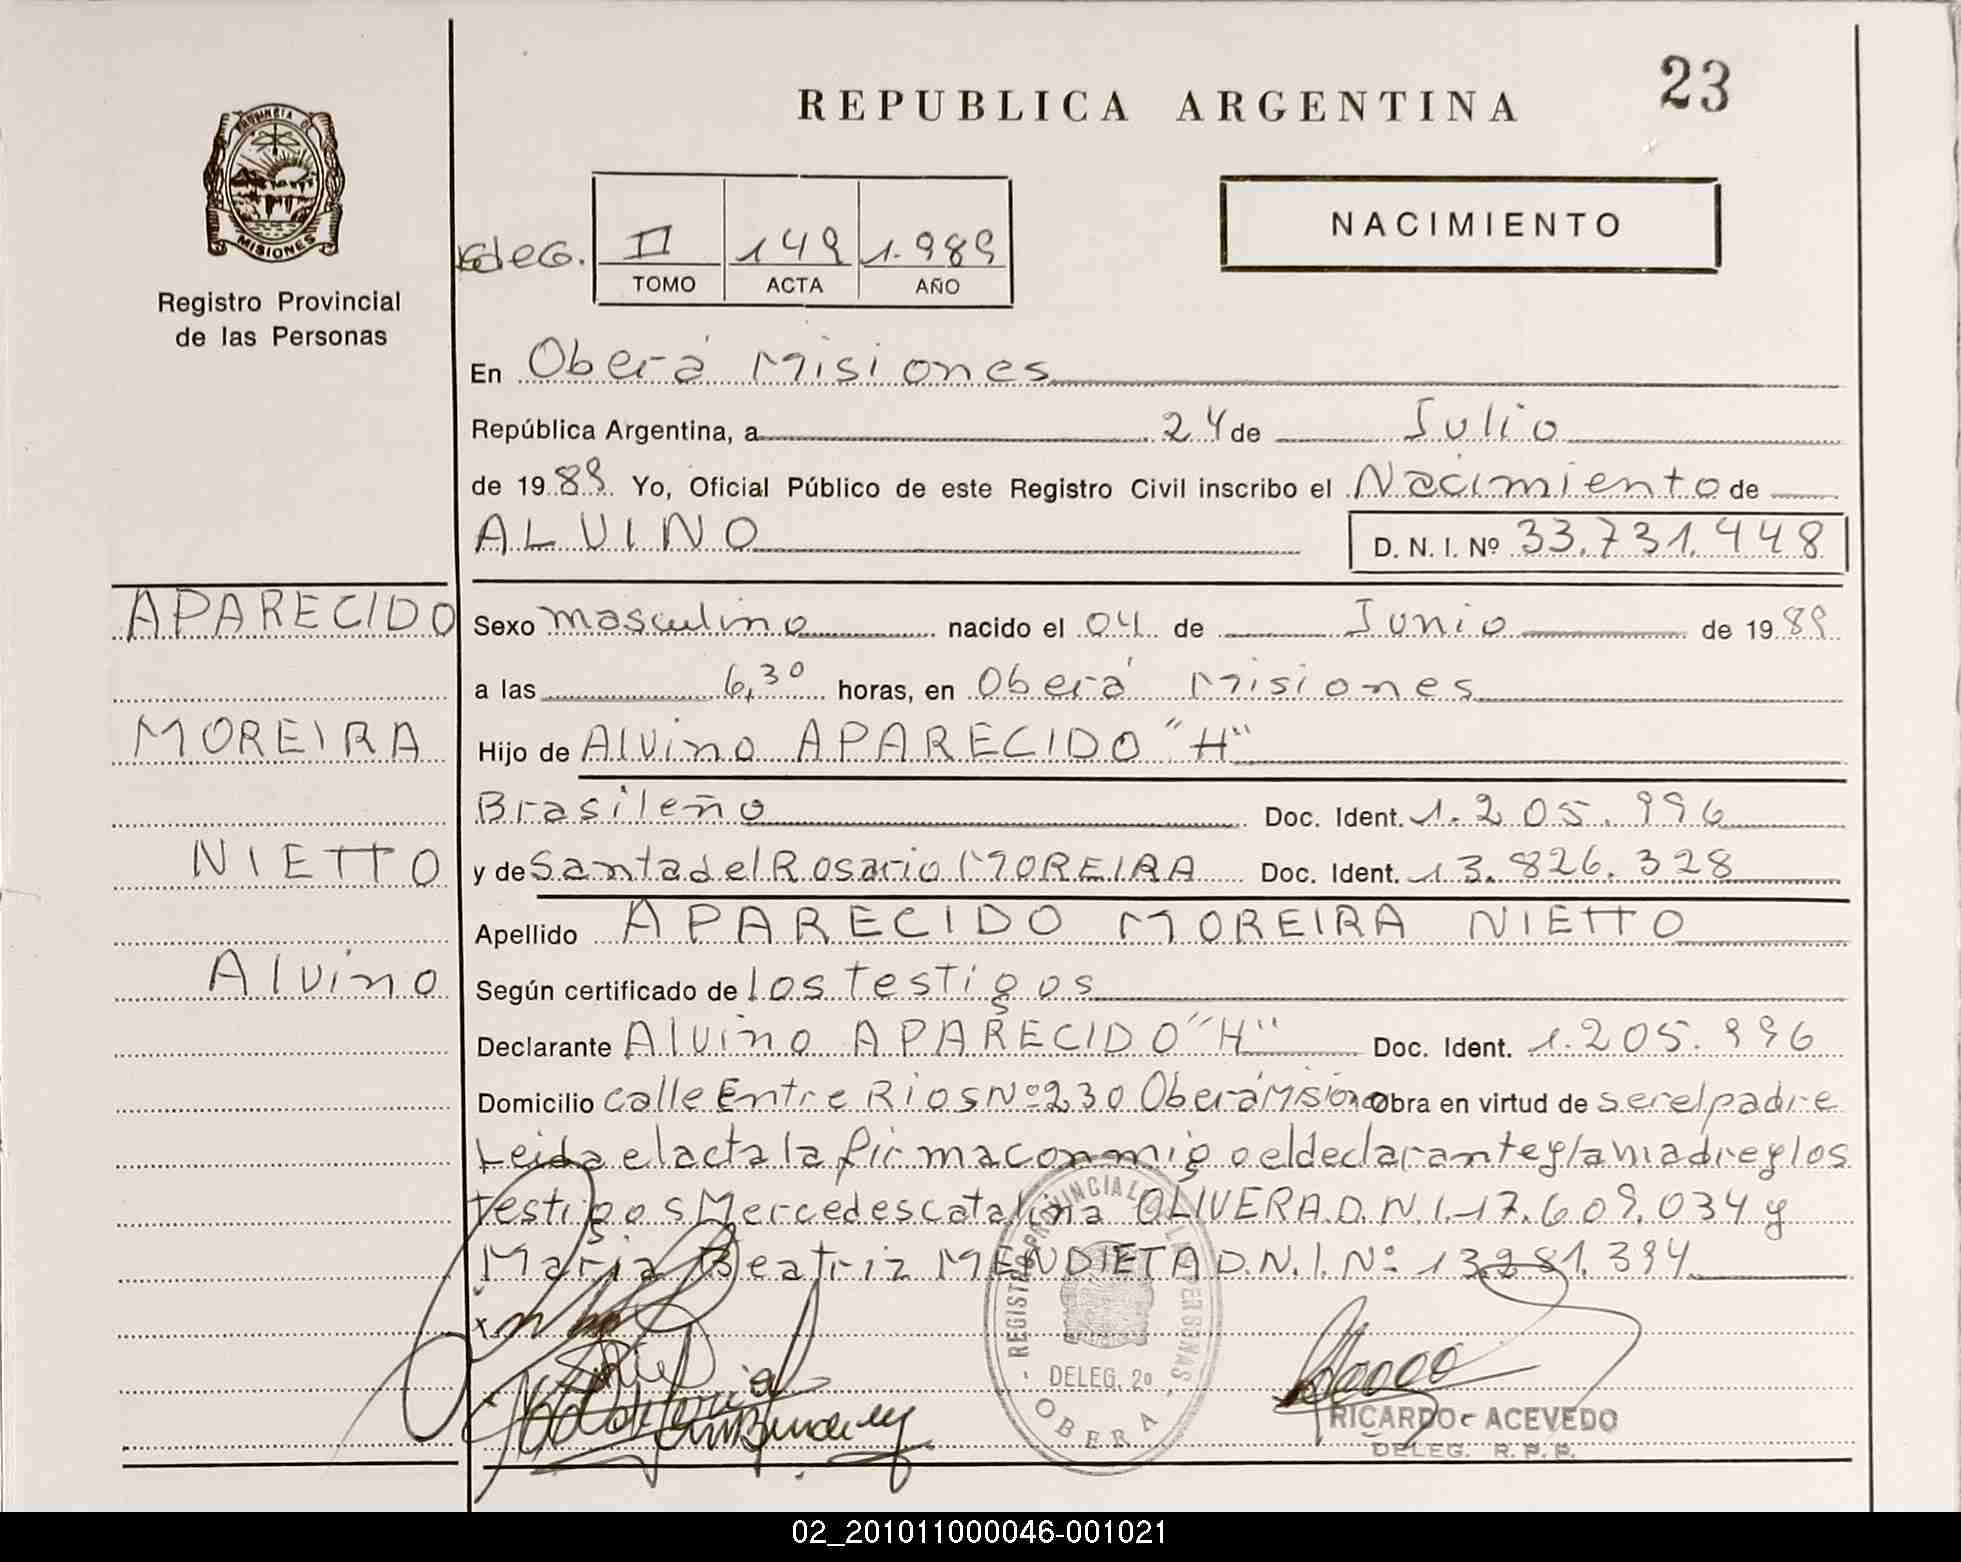 23
REPUBLICA ARGENTINA
PROVINCIA DE
MISIONES
Registro Provincial
de las Personas
NACIMIENTO
deG. II 149 1.989
TOMO ACTA AÑO
En Oberá Misiones
República Argentina, a 24 de Julio
de 1989 Yo, Oficial Público de este Registro Civil inscribo el Nacimiento de
ALVINO D. N. I. Nº 33.731.448
APARECIDO
MOREIRA
NIETTO
Alvino
Sexo masculino nacido el 04 de Junio de 1989
a las 6,30 horas, en Oberá Misiones
Hijo de Alvino APARECIDO "H"
Brasileño Doc. Ident. 1.205.996
y de Santa del Rosario MOREIRA Doc. Ident. 13.826.328
Apellido APARECIDO MOREIRA NIETTO
Según certificado de los testigos
Declarante Alvino APARECIDO "H" Doc. Ident. 1.205.996
Domicilio calle Entre Rios Nº 230 Oberá Misiones Obra en virtud de ser el padre
Leida el acta la firma conmigo el declarante y la madre y los
testigos Mercedes catalina OLIVERA D.N.I. 17.609.034 y
Maria Beatriz MENDIETA D.N.I. Nº 13.281.394
REGISTRO PROVINCIAL DE LAS PERSONAS
DELEG. 2º
OBERA
RICARDO ACEVEDO
DELEG. R. P. P.
02_201011000046-001021